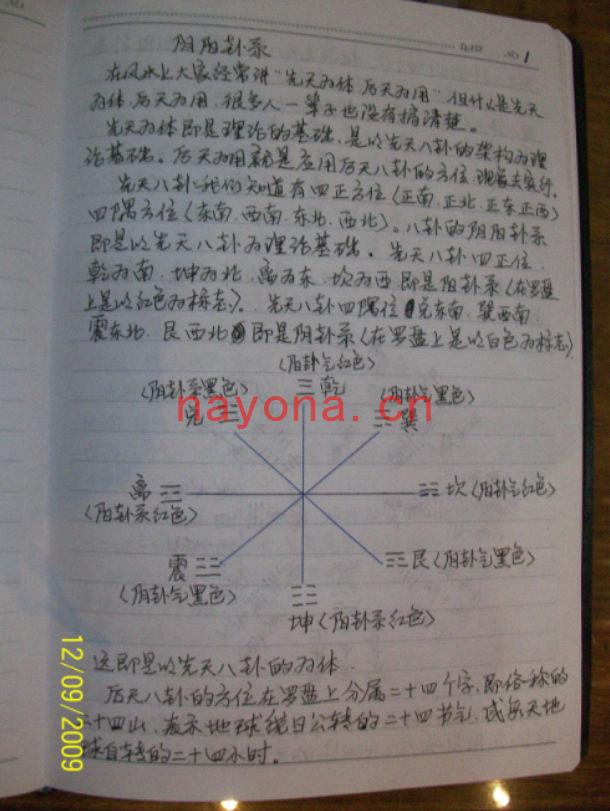 DATE NO. 1
阴阳卦气
在风水上大家经常讲"先天为体,后天为用"但什么是先天
为体,后天为用,很多人一辈子也没有搞清楚。
先天为体即是理论的基础,是以先天八卦的架构为理
论基础。后天为用就是应用后天八卦的方位,现象去实行。
先天八卦我们知道有四正方位(正南.正北.正东.正西)
四隅方位(东南.西南.东北.西北)。八卦的阴阳卦气
即是以先天八卦为理论基础。先天八卦四正位.
乾为南.坤为北.离为东.坎为西即是阳卦气(在罗盘
上是以红色为标志)。先天八卦四隅位兑东南.巽西南
震东北.艮西北即是阴卦气(在罗盘上是以白色为标志)
(阳卦气红色)
(阴卦气黑色) ☰乾 (阴卦气黑色)
兑☱ ☴巽
离☲ ☵坎(阳卦气红色)
(阳卦气红色)
震☳ ☶艮(阴卦气黑色)
(阴卦气黑色) ☷
坤(阳卦气红色)
这即是以先天八卦的为体.
后天八卦的方位在罗盘上分属二十四个字,即俗称的
二十四山.表示地球绕日公转的二十四节气,或象天地
球自转的二十四小时。
nayona.cn
12/09/2009